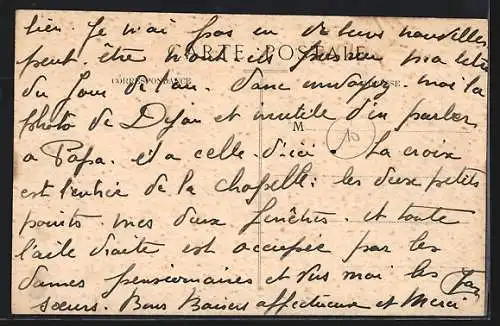 bien. Je n'ai pas eu de leurs nouvelles
peut. être n'ont ils pas reçu ma lettre
CARTE POSTALE
du Jour de l'an. donc envoyez. moi la
CORRESPONDANCE
photo de Dijon et inutile d'en parler
M
10
a Papa. et a celle d'ici. La croix
est l'entrée de la chapelle. les deux petits
points. mes deux fenêtres. et toute
l'aile droite est occupée par les
dames pensionnaires et moi les
sœurs. Bons Baisers affectueux et Merci